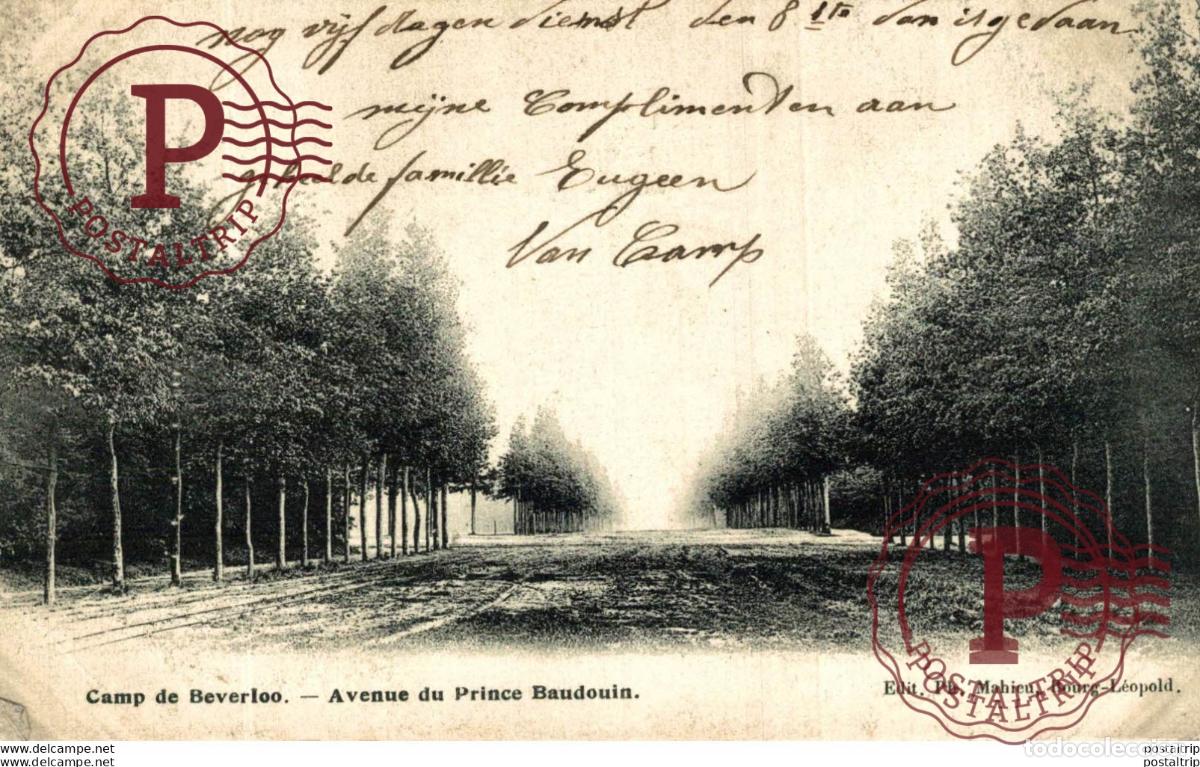 nog vijf dagen dienst den 8ste dan is gedaan
mijne Complimenten aan
famillie Eugeen
Van Camp
P
POSTALTRIP
P
POSTALTRIP
Camp de Beverloo. — Avenue du Prince Baudouin.
Edit. Ph. Mahieu, Bourg-Léopold.
todocoleccion
www.delcampe.net
postaltrip
www.delcampe.net
postaltrip